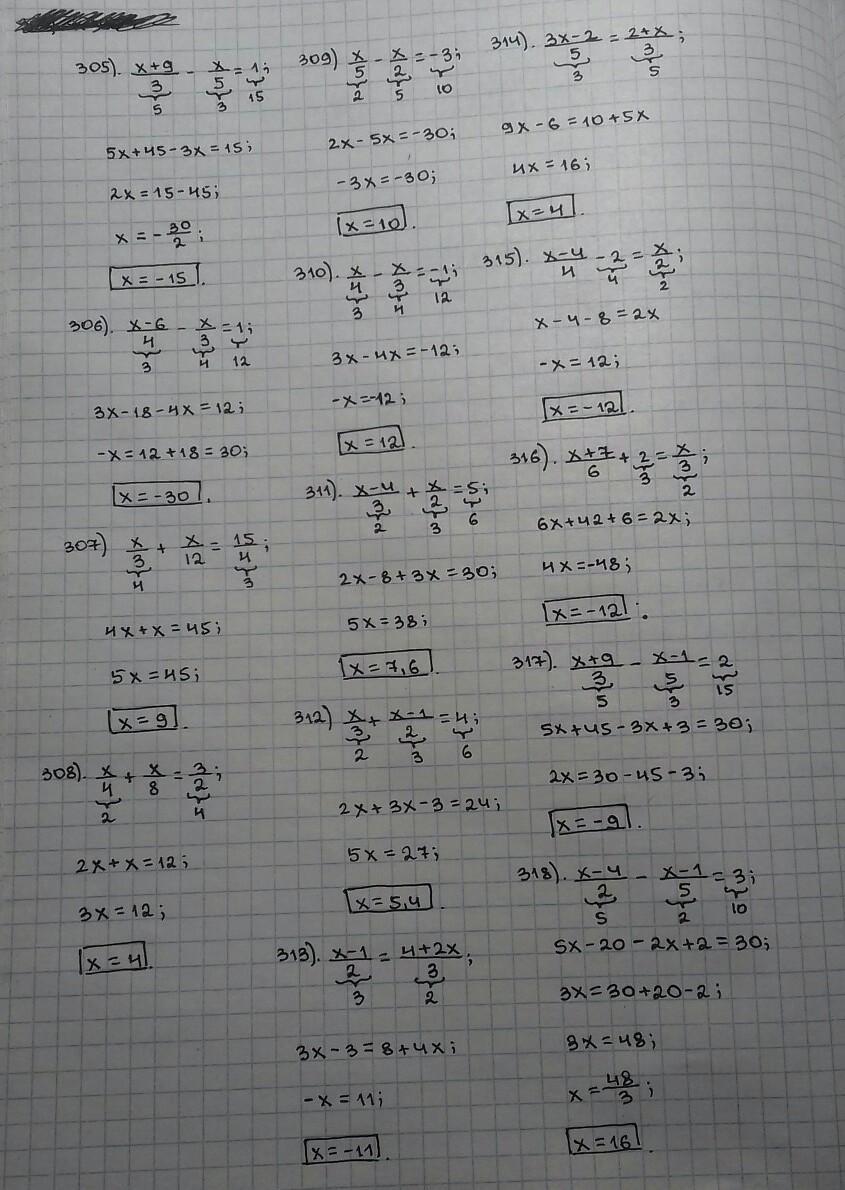 305). (x+9)/3 - x/5 = 1;
5 3 15
5x+45-3x=15;
2x=15-45;
x = -30/2;
x = -15.
306). (x-6)/4 - x/3 = 1;
3 4 12
3x-18-4x=12;
-x=12+18=30;
x=-30.
307) x/3 + x/12 = 15/4;
4 3
4x+x=45;
5x=45;
x=9.
308). x/4 + x/8 = 3/2;
2 4
2x+x=12;
3x=12;
x=4.
309) x/5 - x/2 = -3;
2 5 10
2x-5x=-30;
-3x=-30;
x=10.
310). x/4 - x/3 = -1;
3 4 12
3x-4x=-12;
-x=-12;
x=12.
311). (x-4)/3 + x/2 = 5;
2 3 6
2x-8+3x=30;
5x=38;
x=7,6.
312) x/3 + (x-1)/2 = 4;
2 3 6
2x+3x-3=24;
5x=27;
x=5,4.
313). (x-1)/2 = (4+2x)/3;
3 2
3x-3=8+4x;
-x=11;
x=-11.
314). (3x-2)/5 = (2+x)/3;
3 5
9x-6=10+5x
4x=16;
x=4.
315). (x-4)/4 - 2 = x/2;
4 2
x-4-8=2x
-x=12;
x=-12.
316). (x+7)/6 + 2/3 = x/3;
2
6x+42+6=2x;
4x=-48;
x=-12.
317). (x+9)/3 - (x-1)/5 = 2
5 3 15
5x+45-3x+3=30;
2x=30-45-3;
x=-9.
318). (x-4)/2 - (x-1)/5 = 3;
5 2 10
5x-20-2x+2=30;
3x=30+20-2;
3x=48;
x=48/3;
x=16.